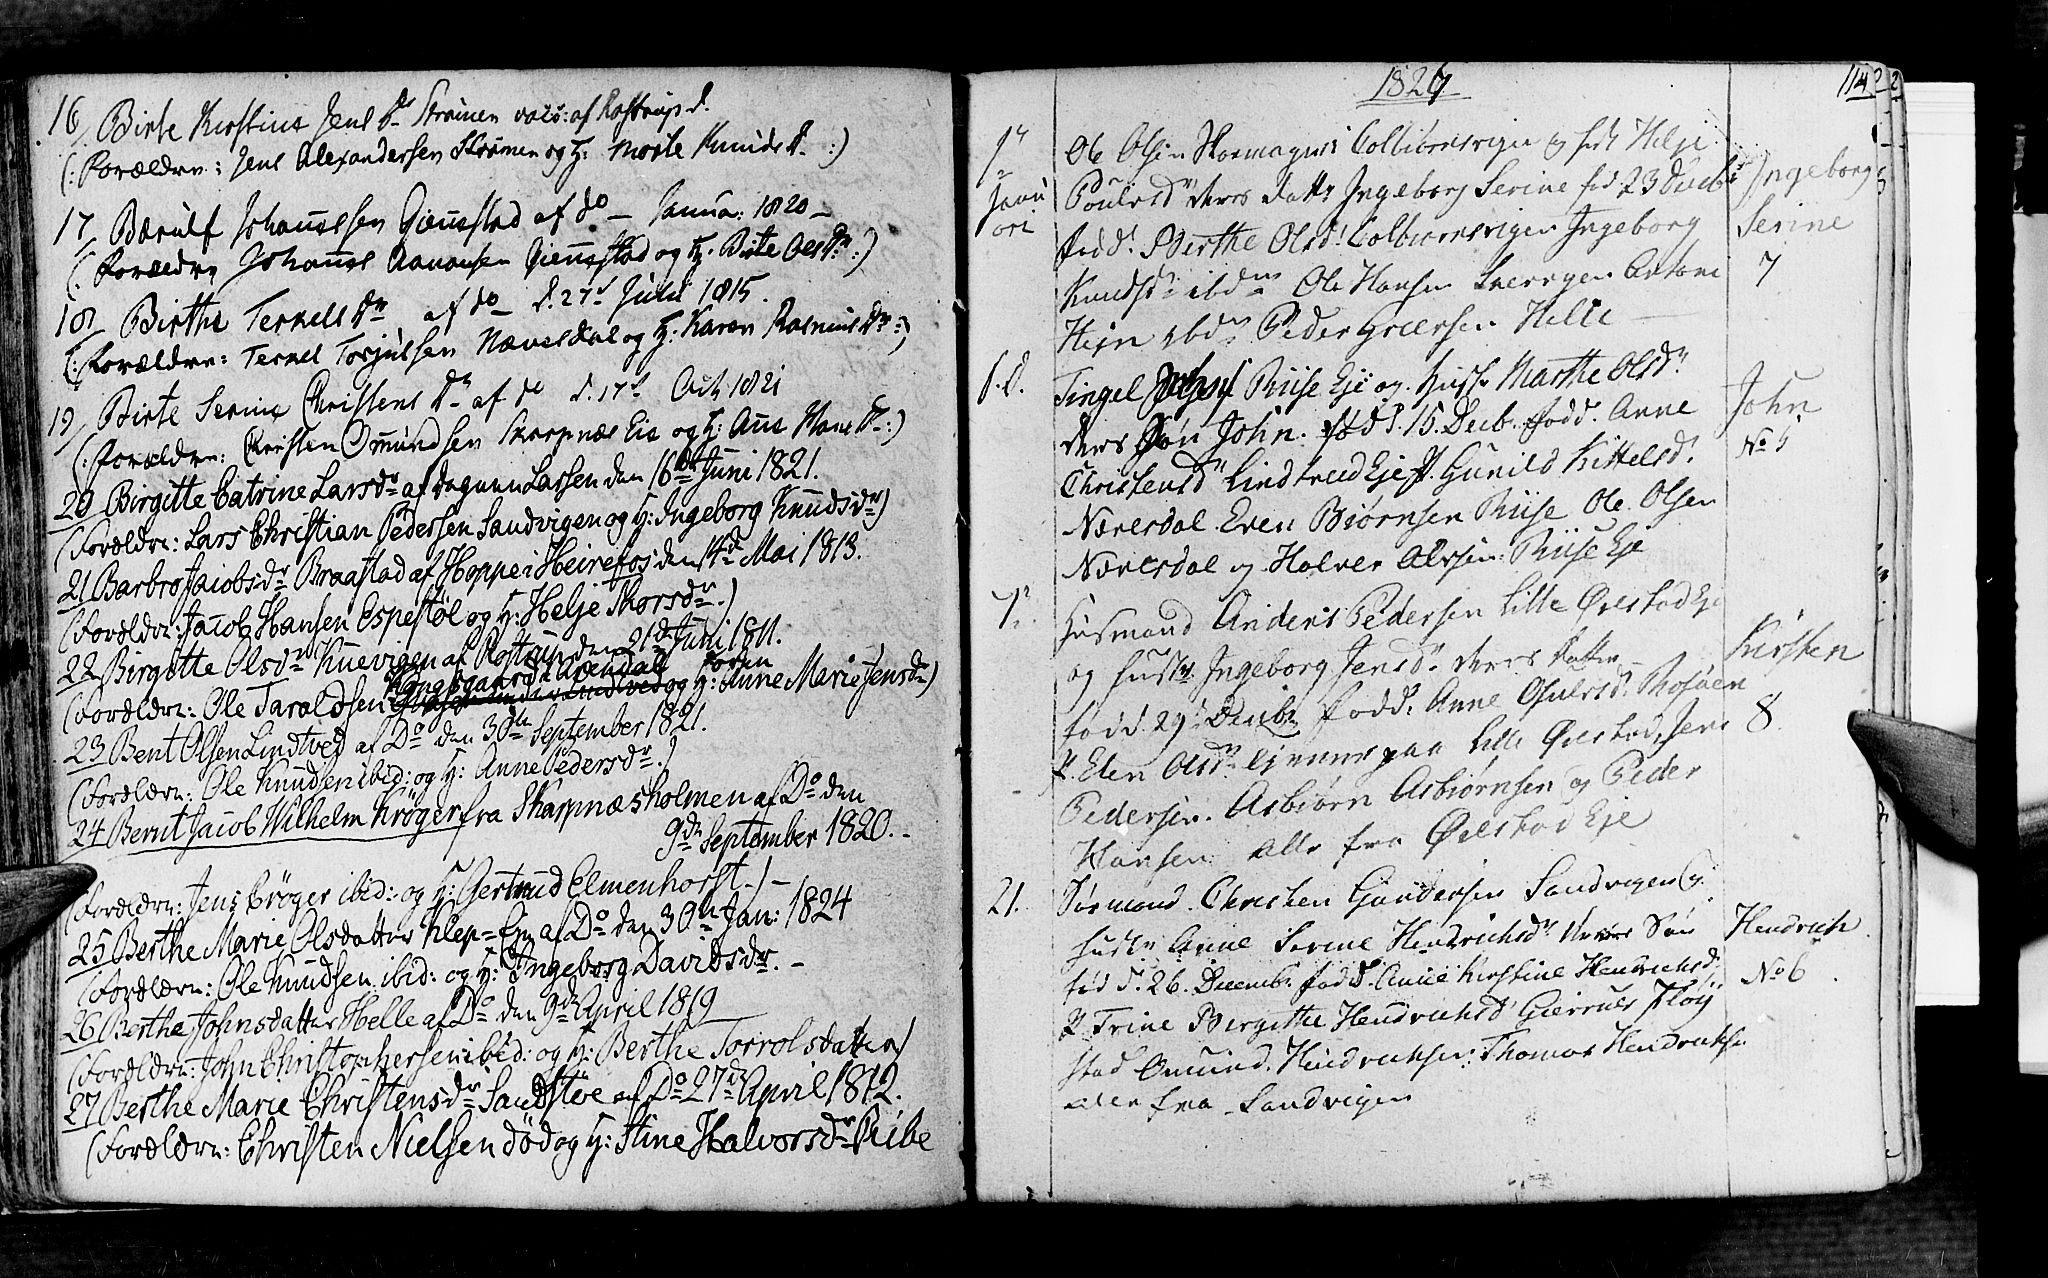 16/ Birte Kirstine Jens Dr Strømen vac: af Rostrup d.
(: Forældre: Jens Alexandersen Strømen og H: Marte Knuds Dr :)
17 Bærulf Johannessen Gjennestad af do - Janua: 1820 -
(: Forældre Johannes Aanonsen Gjennestad og H. Birte Ols Dr :)
18/ Birthe Terkels Dr af do d. 27d Juli 1815.
(: Forældre: Terkel Torjulsen Næversdal og H: Karen Rasmus Dr :)
19/ Birte Serine Christens Dr af do d. 17d Oct: 1821
(: Forældre: Christen Omundsen Skarpnæs Eie og H: Ane Dr :)
20 Birgitte Catrine Larsdr af Lassen den 16de Juni 1821.
(Forældre: Lars Christian Pedersen Sandvigen og H: Ingeborg Knudsdr)
21 Barbro Jacobsdr Braastad af Hoppe i Heirefos den 14d Mai 1813.
(Forældre: Jacob Hansen Espestøl og H: Helje Thorsdr.)
22 Birgitte Olsdr Knevigen af Rostrup den 21d Juni 1811.
Kongsgaard i Arendal forhen
(Forældre: Ole Taraldsen og H: Anne Marie Jensdr)
23 Bent Olsen Lindtved af Do den 30te September 1821.
(Forældre: Ole Knudsen ibid: og H: Anne Pedersdr.)
24 Bernt Jacob Wilhelm Krøger fra Skarpnæsholmen af Do den
9de September 1820. -
(Forældre: Jens Crøger ibid: og H: Gertrud Elmenhorst.) -
25 Berthe Marie Olsdatter Klep=Eje af Do den 30te Jan: 1824
(Forældre: Ole Knudsen ibid: og H: Ingeborg Davidsdr. -
26 Berthe Johnsdatter Helle af Do den 9de April 1819
(Forældre: John Christophersen ibid: og H: Berthe Torrolsdatter)
27 Berthe Marie Christensdr Sandstøe af Do 27de April 1812.
(Forældre: Christen Nielsen død og H: Stine Halvorsdr Ribe
1826
114
1r Ole Olsen Skomager Colbiørnsvigen og hst. Helje
Janu Poulsdr deres Dattr Ingeborg Serine fød 23 Decbr Ingeborg
ari fadd. Berthe Olsd. Colbiørnsvigen Ingeborg Serine
Knudsdr ibdm Ole Hansen Antoni 7
Hejn ibdm Peder Helle
6.d. Tingel Jensen Riise Eje og Hustr Marthe Olsdr
deres Søn John. fød d. 15. Decb. fadd. Anne John
Christensdr Lindtved Eje P. Gunild Kittelsd. No 5
Næversdal Even Biørnsen Riise Ole Olsen
Næversdal og Halvor Olsen Riise Eje
7de Husmand Anders Pedersen Lille Ørestad Eje
og Hustr Ingeborg Jensdr deres Datter Kirsten
fød d. 29 Decbr fadd. Anne Rosøen
P. Elen Olsdr paa Lille Ørestad, Jens 8.
Pedersen. Asbiørn Asbiørnsen og Peder
Hansen alle fra Ørestad Eje
21. Sørmand Christen Gundersen Sandvigen og
hustr Anne Serine Hendrichsdr deres Søn Hendrich
fød d. 26. Decembr fadd. Anne Kirstine Hendrichsd. No 6.
P. Trine Birgitte Hendrichsd
stad Omund Hendrichsen. Thomas Hendrichsen
alle fra Sandvigen